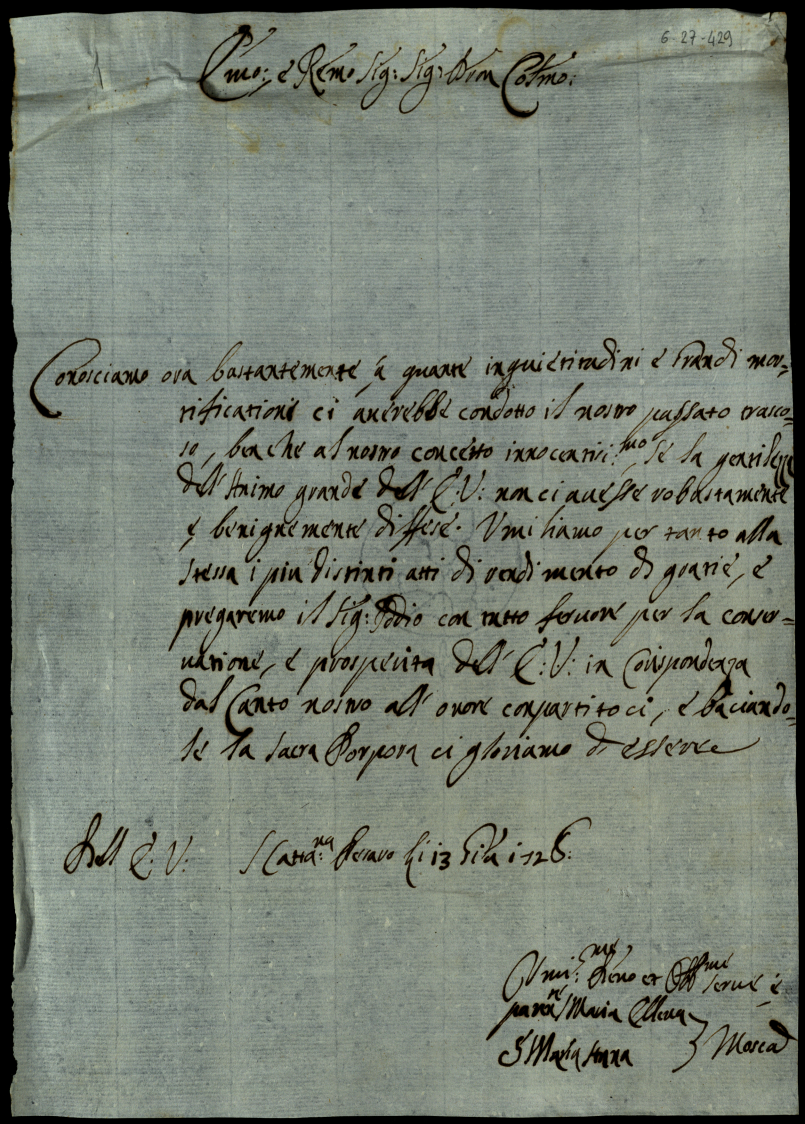 6-27-429
Emo: e Remo Sig: Sig: Pron Colmo:
Conosciamo ora bastantemente, a quante inquietitudini e grandi mor=
tificationi ci auerebbe condotto il nostro passato trasco=
so, benche al nostro concetto innocentissi:mo, se la gentilezza
dell'Animo grande dell'E:V: non ci auesse robustamente
e benignemente diffese. Umiliamo per tanto alla
stessa i piu distinti atti di rendimento di gratie, e
pregaremo il Sig: Iddio con tutto feruore per la conser=
uatione, e prosperita dell'E:V: in Corispondenza
dal Canto nostro all'onore conpartitoci, e baciando=
le la sacra Porpora ci gloriamo di essere
Dell'E:V: S Catta:na Pesaro li 13 1726:
Umi:me Deuo et Obb:me serue e
paren:ti Maria Ellena
E Maria Anna } Mosca